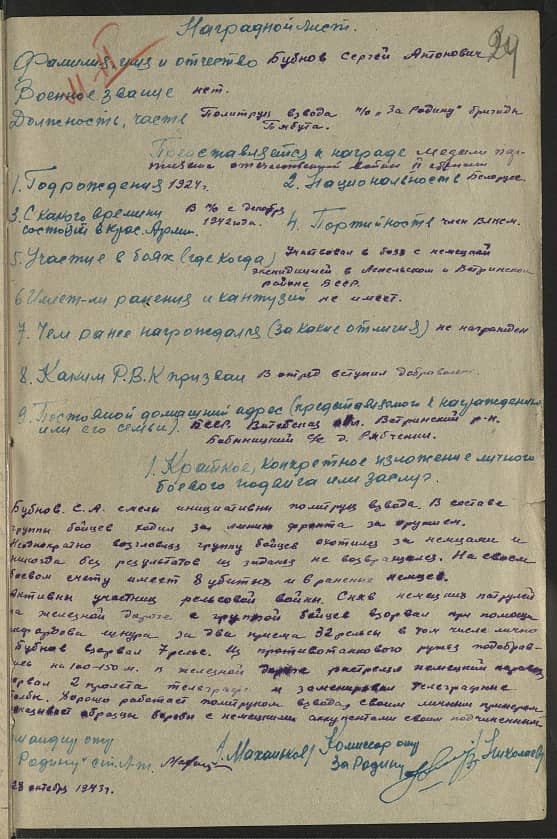 Наградной лист.
29
Фамилия, имя и отчество Бубнов Сергей Антонович
Военное звание нет.
Должность, часть Политрук взвода п/о "За Родину" бригады
Представляется к награде медали пар-
тизана отечественной войны II степени
1. Год рождения 1921 г. 2. Национальность Белорус.
3. С какого времени в п/о с декабря
состоит в Крас. Армии. 1942 года. 4. Портийность член ВЛКСМ.
5. Участие в боях (где когда) Участвовал в боях с немецкой
экспидицией в Лепельском и Ветринском
районе БССР.
6 Имеет-ли ранения и кантузий не имеет.
7. Чем ранее награждался (за какие отличия) не награжден
8. Каким Р.В.К призван В отряд вступил добравольно.
9. Постояной домашний адрес (представляемого к награждению
или его семьи). БССР. Витебская обл. Ветринский р-н.
Бабыничский с/с д. Рябченки.
1. Краткое, конкретное изложение личного
боевого подвига или заслуг.
Бубнов. С.А. смелы инициативны политрук взвода. В составе
группы бойцев ходил за линию фронта за оружием.
Неоднократно возглавляя группу бойцев охотился за немцами и
никогда без результатов из задания не возвращался. На своем
боевом счету имеет 8 убитых и в ранение немцев.
Активны участник рельсовой войны. Сняв немецких патрулей
на железной дороге с группой бойцев взорвал при помощи
шнура за два приема 32 рельсы в том числе лично
Бубнов взорвал 7 рельс. Из противотанкового ружья подобрав-
шись на 100-150 м. к железной дороге растрелял немецкий паравоз
взорвал 2 пролета телеграфа и заменировал телеграфные
столбы. Хорошо работает политруком взвода, своим личным примером
показывает образцы борьбы с немецкими аккупентами своим подчиненным
Командир отр / Маханьков / Комиссар отр / Николаев
Родину" ст. л-т. За Родину
28 октября 1943 г.